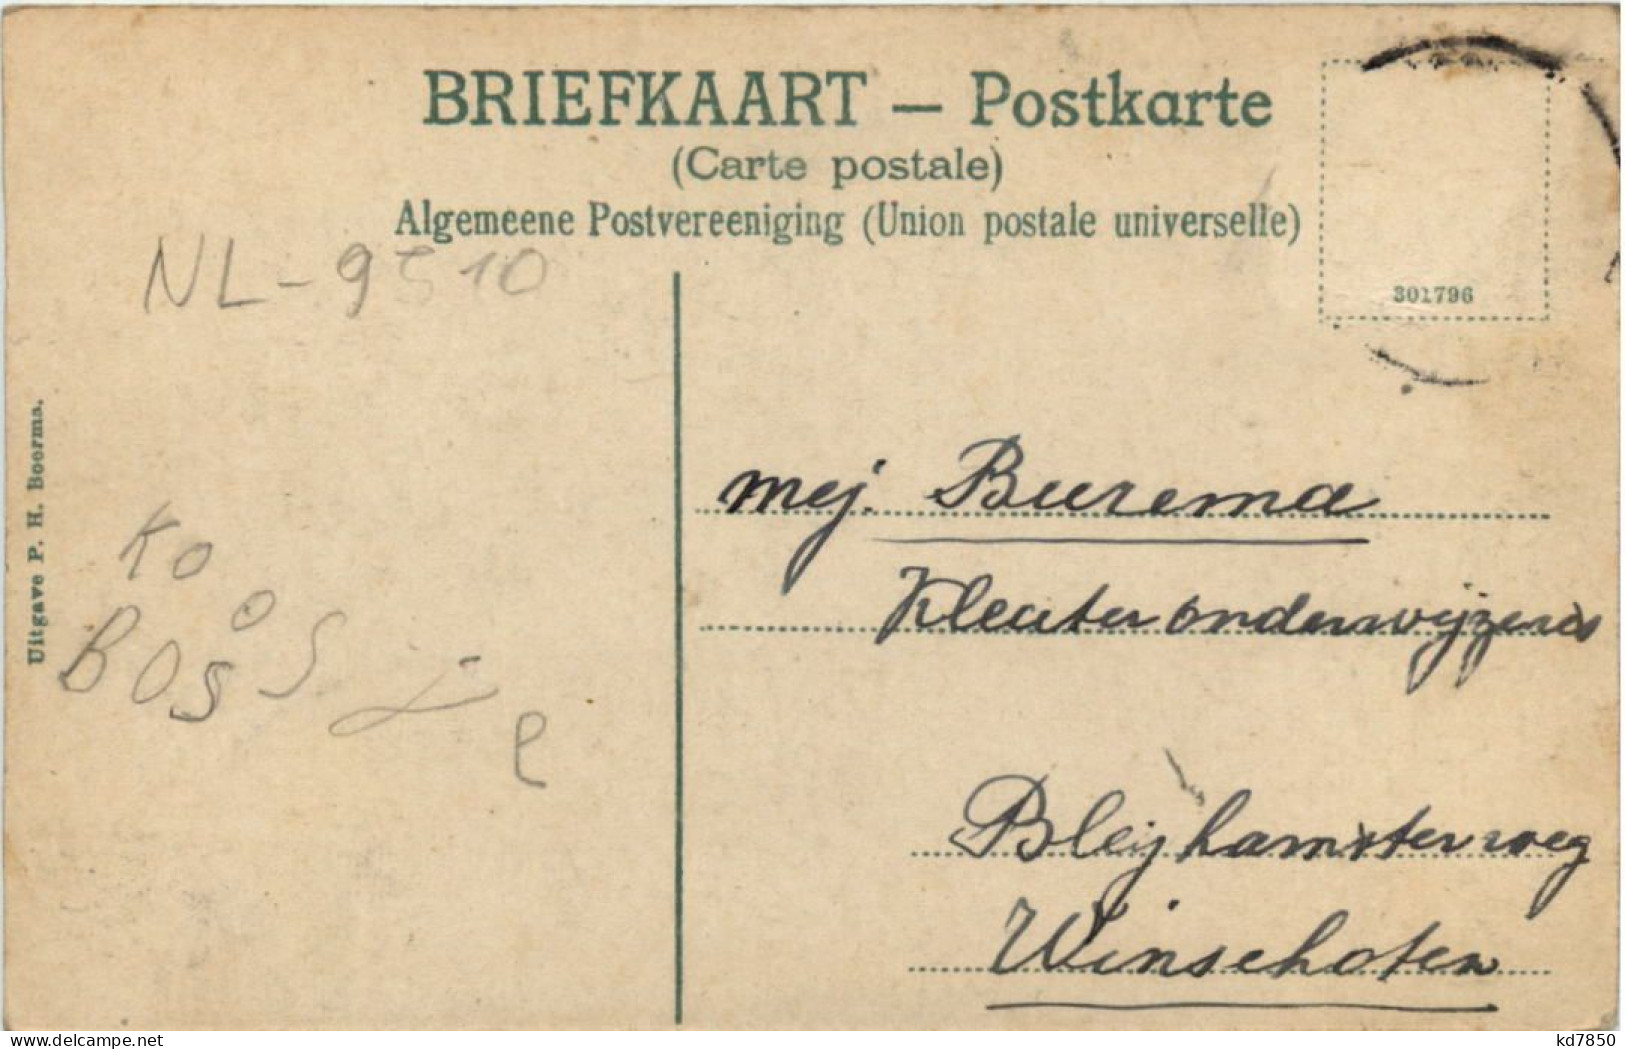 BRIEFKAART — Postkarte
(Carte postale)
Algemeene Postvereeniging (Union postale universelle)
301796
NL-9510
Uitgave P. H. Boorma.
Koos
Bosje
mej. Burema
Kleuteronderwijzeres
Bleijhamsterweg
Winschoten
www.delcampe.net
kd7850